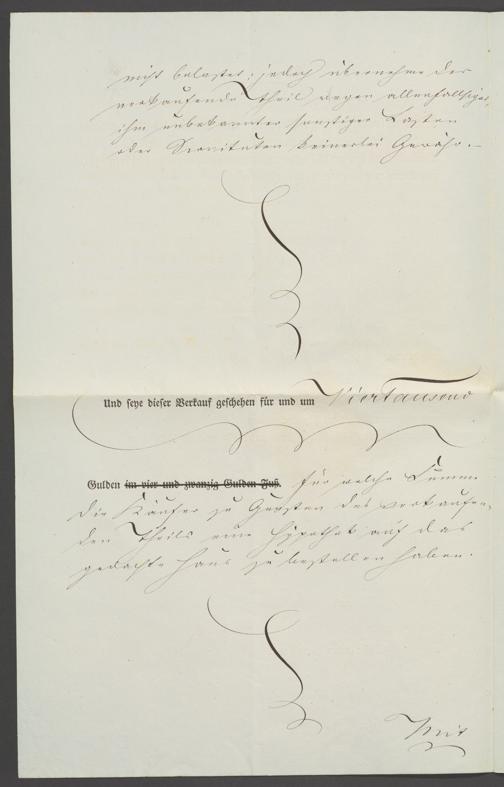 nicht belastet; jedoch übernehme der
verkaufende Theil wegen allenfallsiger,
ihm unbekannter sonstiger Lasten
oder Servituten keinerlei Gewähr.
Und seye dieser Verkauf geschehen für und um Viertausend
Gulden im vier und zwanzig Gulden Fuß. für welche Summe
die Käufer zu Gunsten des verkaufen-
den Theils eine Hypothek auf das
gedachte Haus zu bestellen haben.
Mit